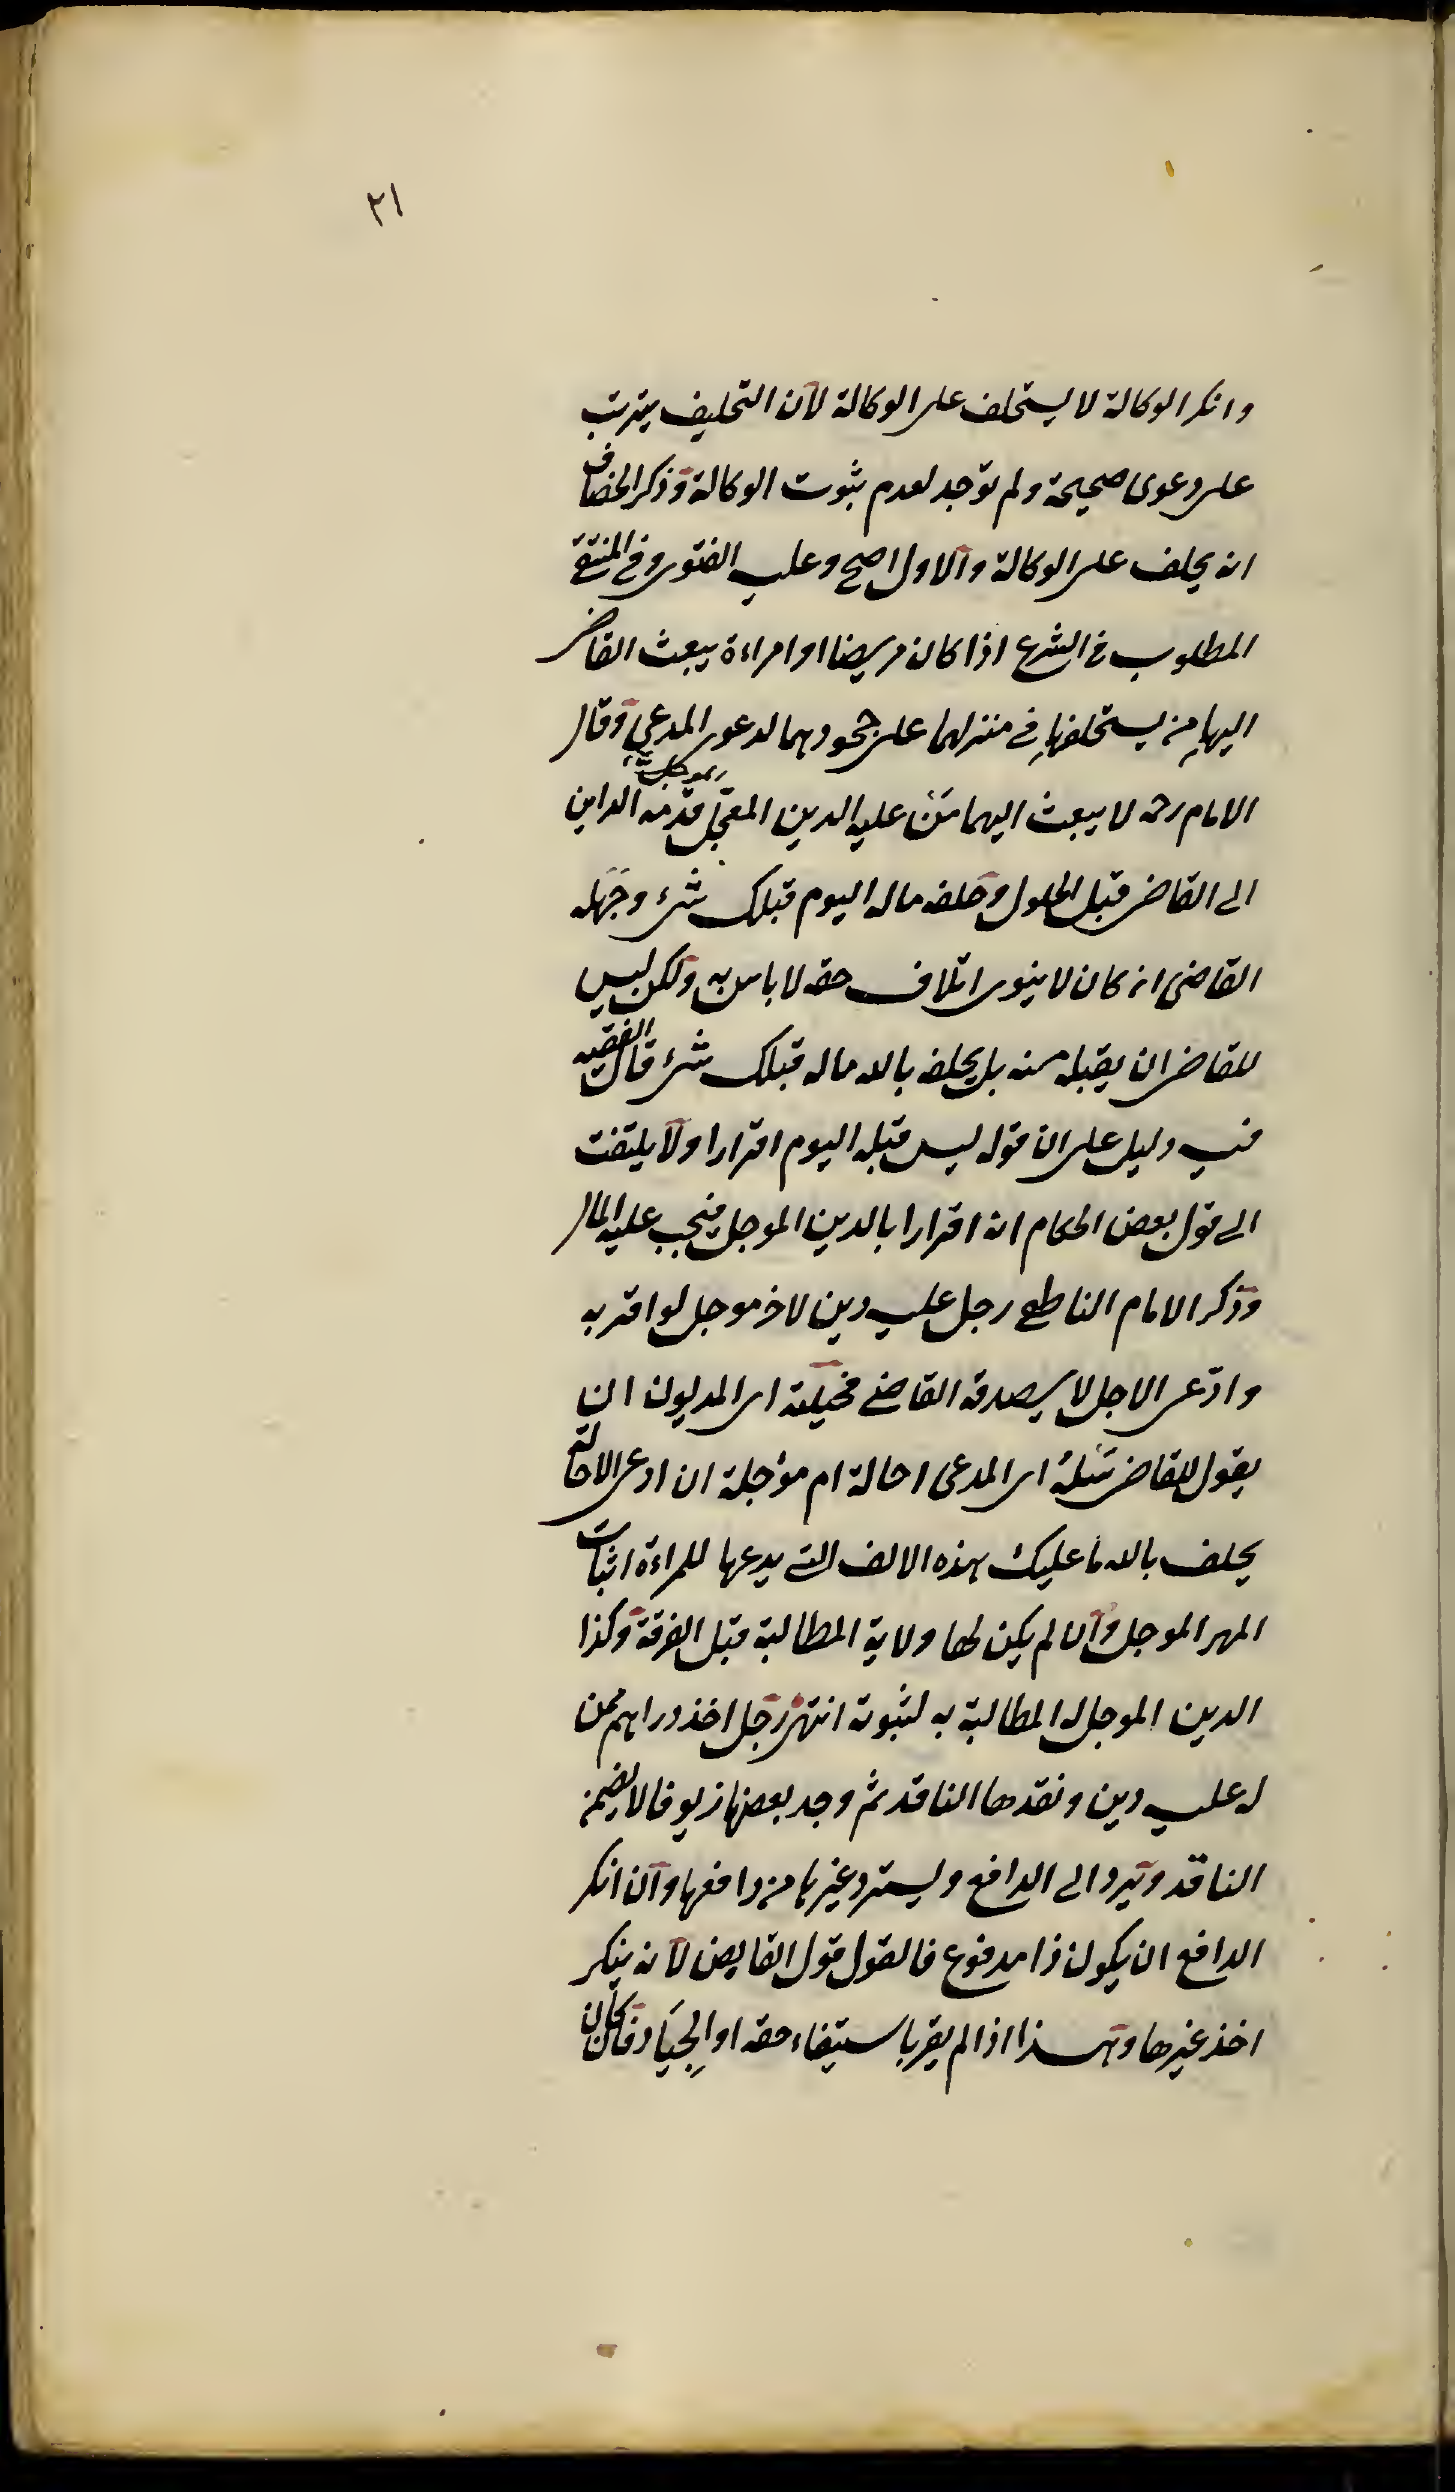 ٢١
وانكر الوكالة لا يستحلف على الوكالة لان التحليف يترتب
على دعوى صحيحة ولم توجد لعدم ثبوت الوكالة وذكر الخصاف
انه يحلف على الوكالة والاول اصح وعليه الفتوى وفى المنتقى
المطلوب فى الشرع اذا كان مريضا او امراءة يبعث القاضى
اليهما من يستحلفهما فى منزلهما على جحودهما لدعوى المدعى وقال
الامام رحمه لا يبعث اليهما مَنْ عليه الدين المعجّل قدّمه الداين
الى القاضى قبل الحلول وحلفه ماله اليوم قبلك شئ وجهله
القاضى ان كان لا ينوى اتلاف حقه لا باس به ولكن ليس
للقاضى ان يقبله منه بل يحلفه بالله ماله قبلك شئ قال الفقيه
فيه دليل على ان قوله ليس قبله اليوم اقرارا ولا يلتفت
الى قول بعض الحكام انه اقرارا بالدين الموجل فيجب عليه المال
وذكر الامام الناطفى رجل عليه دين لاخر موجل لو اقر به
وادّعى الاجل لا يصدقه القاضى فحيلته اى المديون ان
يقول للقاضى سَئلهُ اى المدعى احالة ام مؤجلة ان ادعى الاحالة
يحلف بالله ما عليك هذه الالف التى يدعها للمراءة اثبات
المهر الموجل وان لم يكن لها ولاية المطالبة قبل الفرقة وكذا
الدين الموجل له المطالبة به لثبوته انتهى رجل اخذ دراهم ممن
له عليه دين ونقدها الناقد ثم وجد بعضها زيوفا لا يضمن
الناقد وترد الى الدافع ويسترد غيرها من دافعها وان انكر
الدافع ان يكون ذا مدفوع فالقول قول القابض لانه ينكر
اخذ غيرها وهذا اذا لم يقر باستيفاء حقه او الجياد فان كان